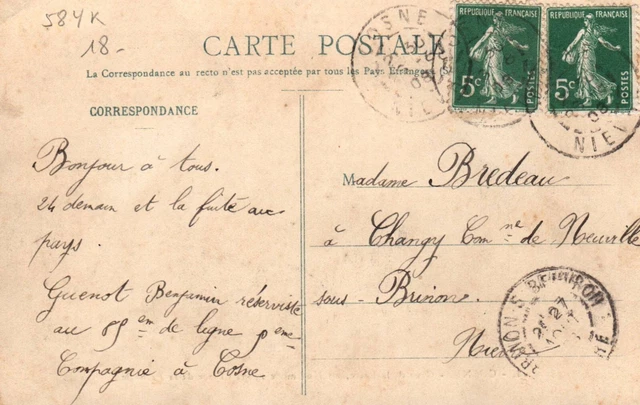 584K
18-
CARTE POSTALE
La Correspondance au recto n'est pas acceptée par tous les Pays Étrangers (S
RÉPUBLIQUE FRANÇAISE
5c
POSTES
RÉPUBLIQUE FRANÇAISE
5c
POSTES
OSNE
NIE
NIEV
CORRESPONDANCE
Bonjour à tous.
24 demain et la fuite au
pays.
Guenot Benjamin réserviste
au 85em de ligne eme
Compagnie à Cosne
Madame Bredeau
à Changy Com ne de Neuville
sous-Brinon.
Niè
BEUVRON
27